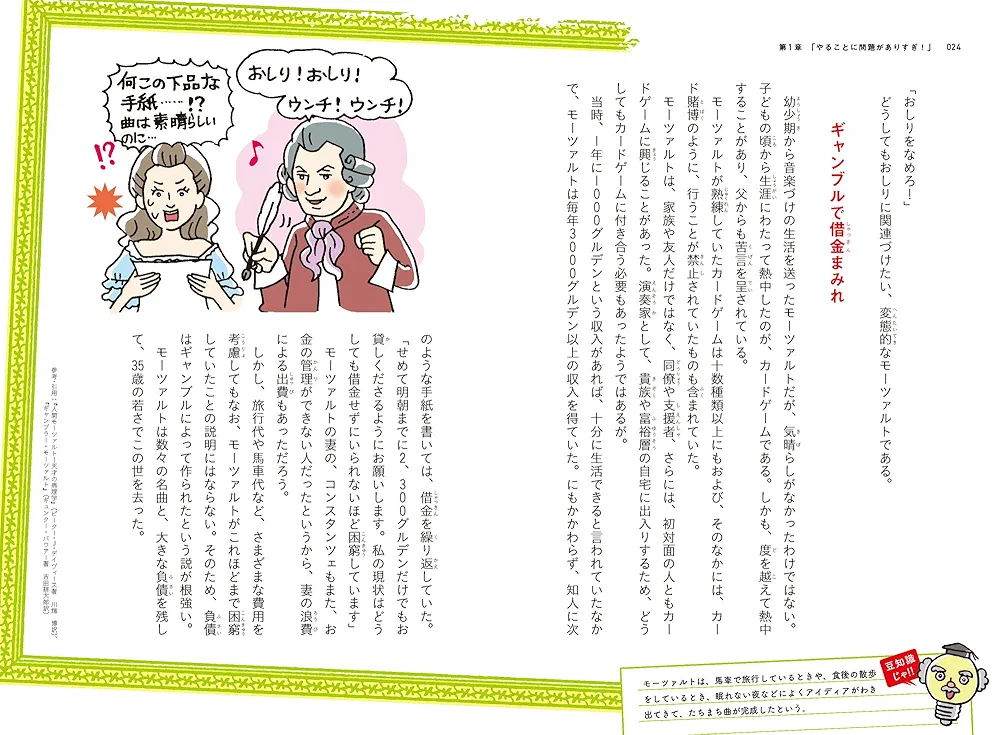 第1章 「やることに問題がありすぎ！」 024
「おしりをなめろ！」
どうしてもおしりに関連づけたい、変態的なモーツァルトである。
ギャンブルで借金まみれ
幼少期から音楽づけの生活を送ったモーツァルトだが、気晴らしがなかったわけではない。
子どもの頃から生涯にわたって熱中したのが、カードゲームである。しかも、度を越えて熱中
することがあり、父からも苦言を呈されている。
モーツァルトが熟練していたカードゲームは十数種類以上にもおよび、そのなかには、カー
ド賭博のように、行うことが禁止されていたものも含まれていた。
モーツァルトは、家族や友人だけではなく、同僚や支援者、さらには、初対面の人ともカー
ドゲームに興じることがあった。演奏家として、貴族や富裕層の自宅に出入りするため、どう
してもカードゲームに付き合う必要もあったようではあるが。
当時、1年に1000グルデンという収入があれば、十分に生活できると言われていたなか
で、モーツァルトは毎年3000グルデン以上の収入を得ていた。にもかかわらず、知人に次
おしり！おしり！
ウンチ！ウンチ！
何この下品な
手紙……!?
曲は素晴らしい
のに…
!?
のような手紙を書いては、借金を繰り返していた。
「せめて明朝までに2、300グルデンだけでもお
貸しくださるようにお願いします。私の現状はどう
しても借金せずにいられないほど困窮しています」
モーツァルトの妻の、コンスタンツェもまた、お
金の管理ができない人だったというから、妻の浪費
による出費もあっただろう。
しかし、旅行代や馬車代など、さまざまな費用を
考慮してもなお、モーツァルトがこれほどまで困窮
していたことの説明にはならない。そのため、負債
はギャンブルによって作られたという説が根強い。
モーツァルトは数々の名曲と、大きな負債を残し
て、35歳の若さでこの世を去った。
参考・引用：『人間モーツァルト―天才の病理学』（ピーター・J・デイヴィース著 川端 博訳）、
『ギャンブラー・モーツァルト』（ギュンター・バウアー著 吉田耕太郎訳）
豆知識
じゃ!!
モーツァルトは、馬車で旅行しているときや、食後の散歩
をしているとき、眠れない夜などによくアイディアがわき
出てきて、たちまち曲が完成したという。